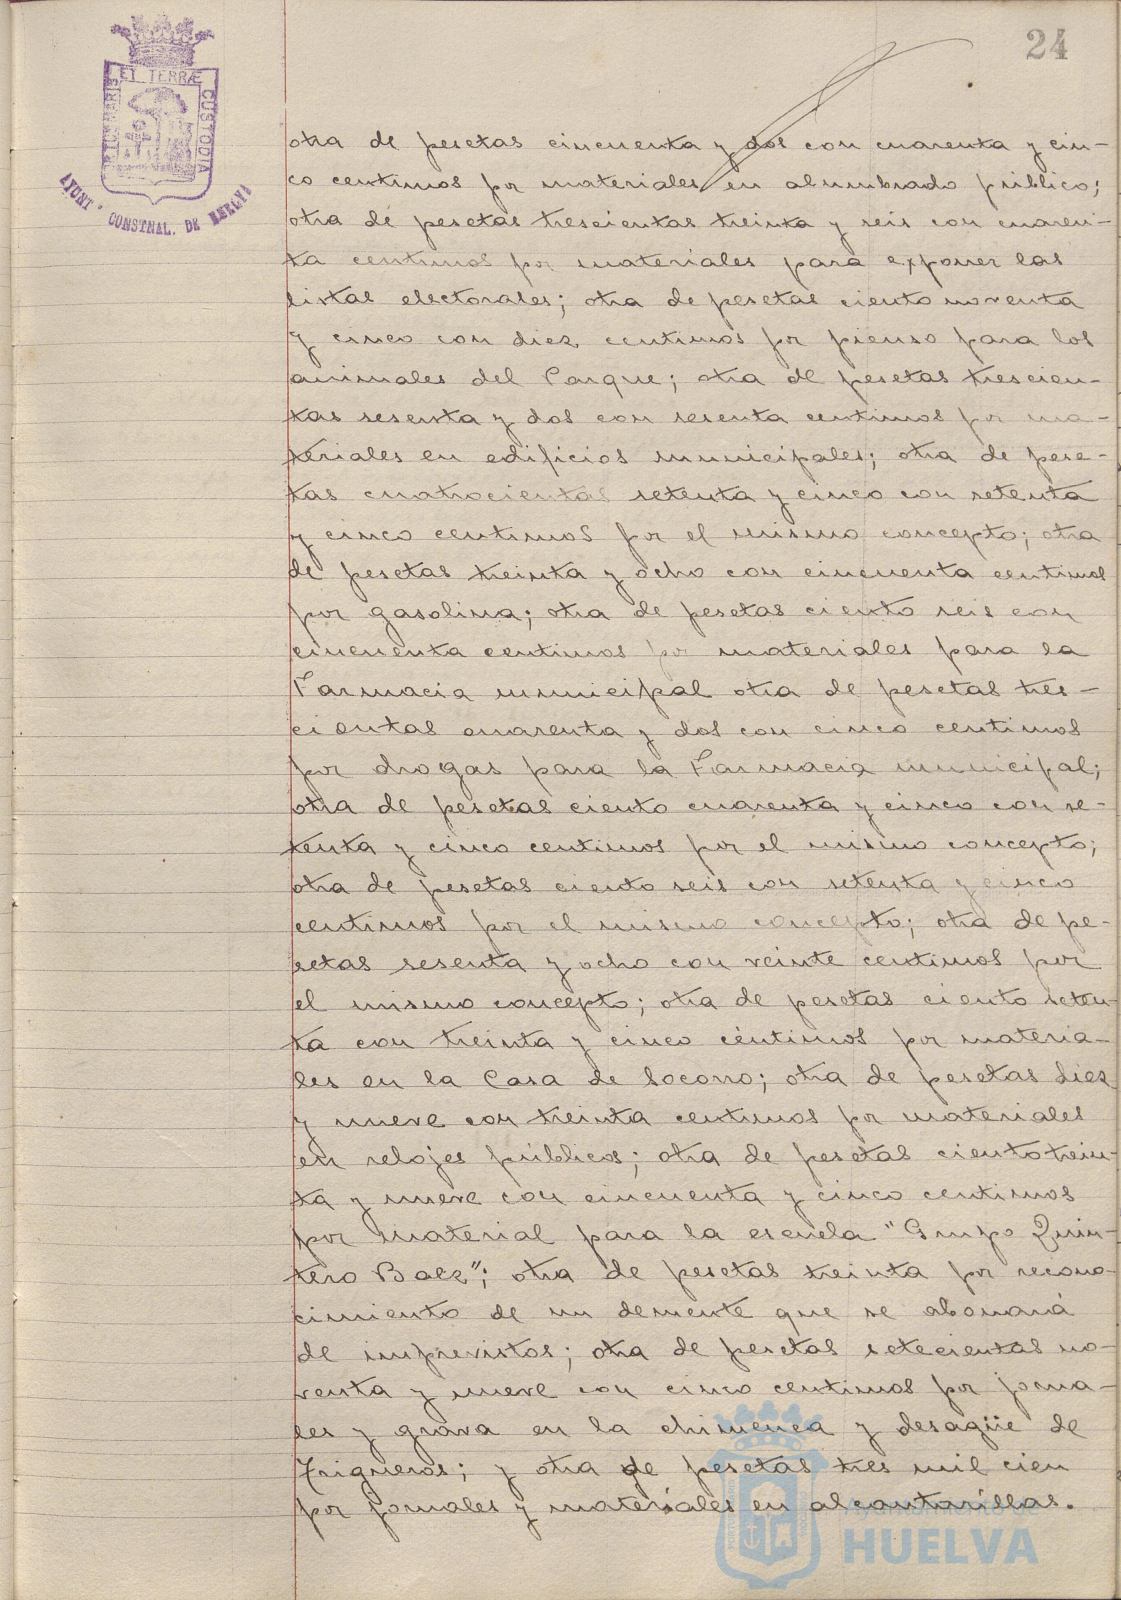 24
ET TERRÆ
CUSTODIA
AYUNT. CONSTNAL. DE HUELVA
otra de pesetas cincuenta y dos con cuarenta y cin-
co centimos por materiales en alumbrado público;
otra de pesetas trescientas treinta y seis con cuaren-
ta centimos por materiales para exponer las
listas electorales; otra de pesetas ciento noventa
y cinco con diez centimos por pienso para los
animales del Parque; otra de pesetas trescien-
tas sesenta y dos con sesenta centimos por ma-
teriales en edificios municipales; otra de pese-
tas cuatrocientas setenta y cinco con setenta
y cinco centimos por el mismo concepto; otra
de pesetas treinta y ocho con cincuenta centimos
por gasolina; otra de pesetas ciento seis con
cincuenta centimos por materiales para la
Farmacia municipal otra de pesetas tres-
cientas cuarenta y dos con cinco centimos
por drogas para la Farmacia municipal;
otra de pesetas ciento cuarenta y cinco con se-
tenta y cinco centimos por el mismo concepto;
otra de pesetas ciento seis con setenta y cinco
centimos por el mismo concepto; otra de pe-
setas sesenta y ocho con veinte centimos por
el mismo concepto; otra de pesetas ciento seten-
ta con treinta y cinco céntimos por materia-
les en la Casa de Socorro; otra de pesetas diez
y nueve con treinta centimos por materiales
en relojes públicos; otra de pesetas ciento trein-
ta y nueve con cincuenta y cinco centimos
por material para la escuela "Grupo Quin-
tero Baez"; otra de pesetas treinta por recono-
cimiento de un demente que se abonará
de imprevistos; otra de pesetas setecientas no-
venta y nueve con cinco centimos por jorna-
les y grava en la chimenea y desagüe de
Trigueros; y otra de pesetas tres mil cien
por jornales y materiales en alcantarillas.
Ayuntamiento de
HUELVA